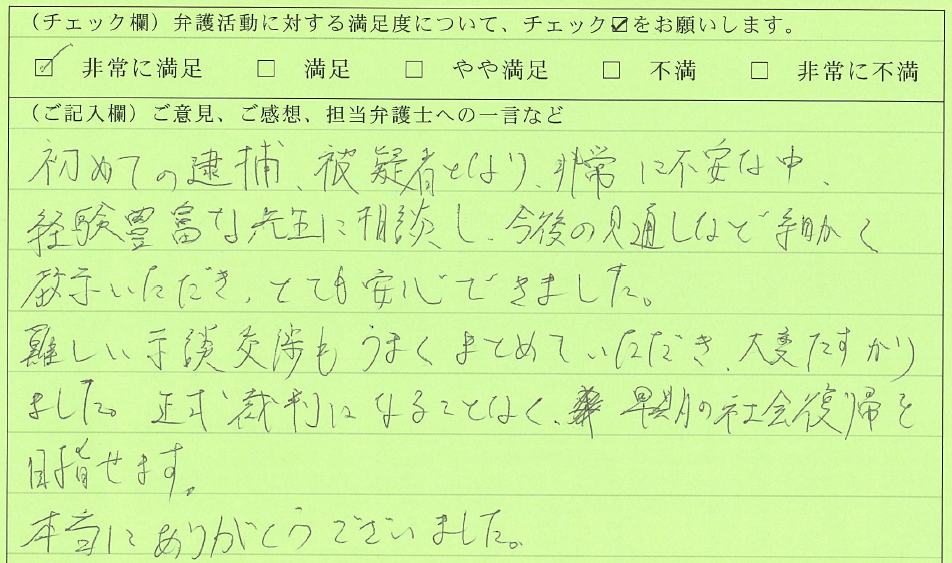 (チェック欄)弁護活動に対する満足度について、チェック☑をお願いします。
☑ 非常に満足 □ 満足 □ やや満足 □ 不満 □ 非常に不満
(ご記入欄)ご意見、ご感想、担当弁護士への一言など
初めての逮捕、被疑者となり、非常に不安な中、
経験豊富な先生に相談し、今後の見通しなど細かく
教示いただき、とても安心できました。
難しい示談交渉もうまくまとめていただき、大変たすかり
ました。正式裁判になることなく、早期の社会復帰を
目指せます。
本当にありがとうございました。